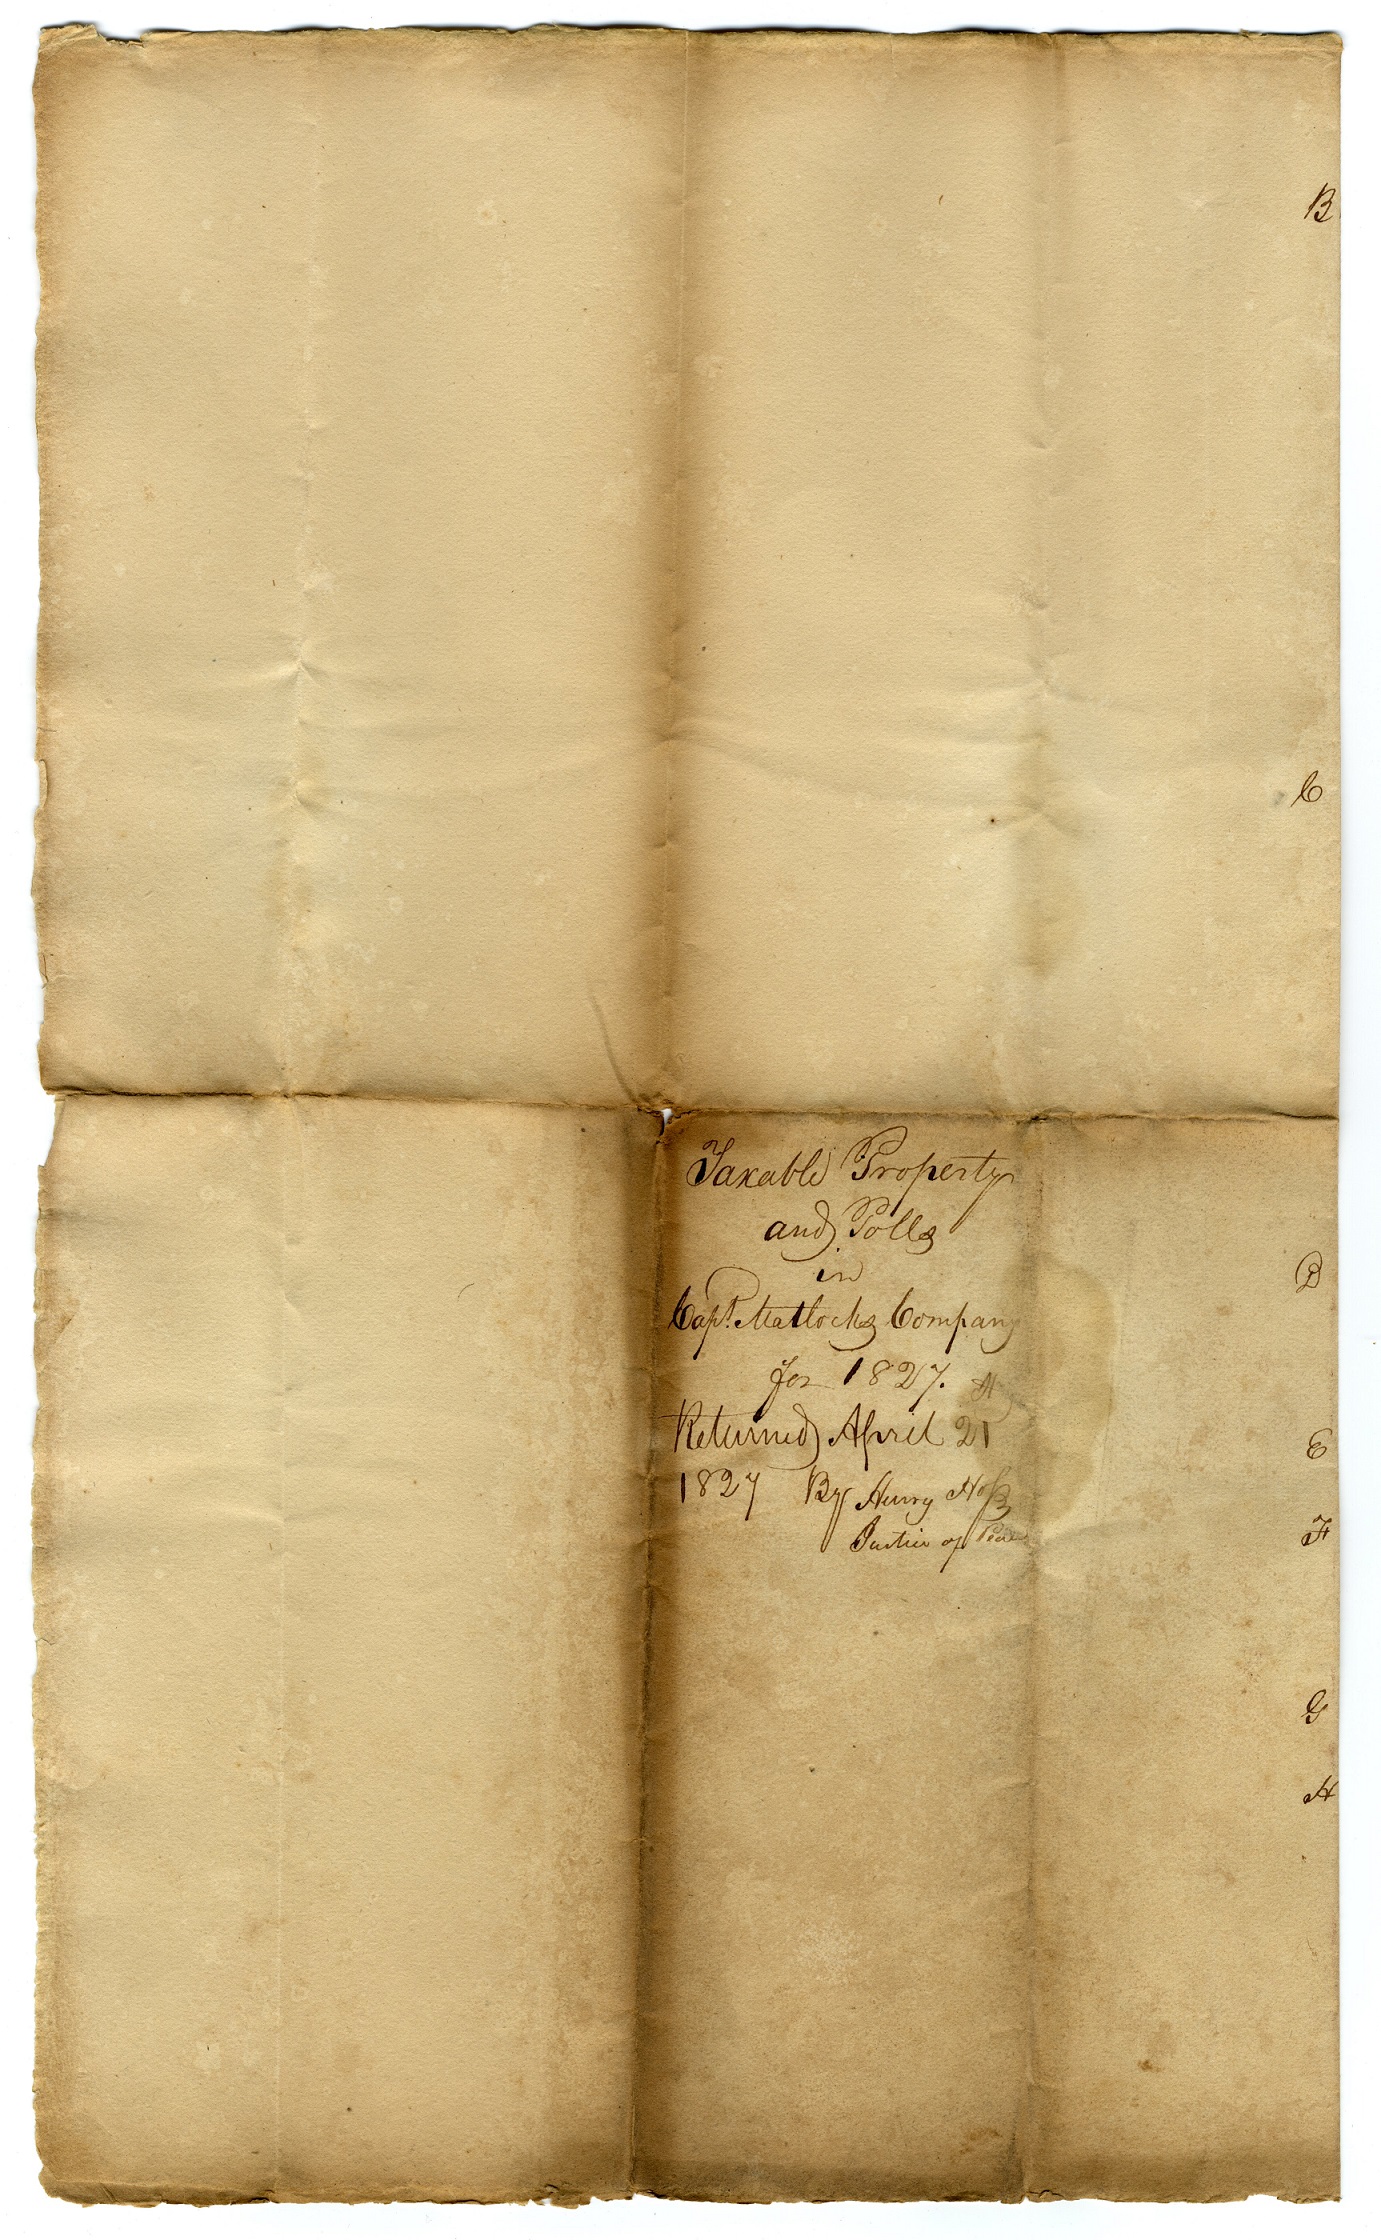 Taxable Property
and Polls
in
Capt. Matlocks Company
for 1827.
H
Returned April 21
1827 By Henry
Justice of Peace
B
C
D
E
F
G
H